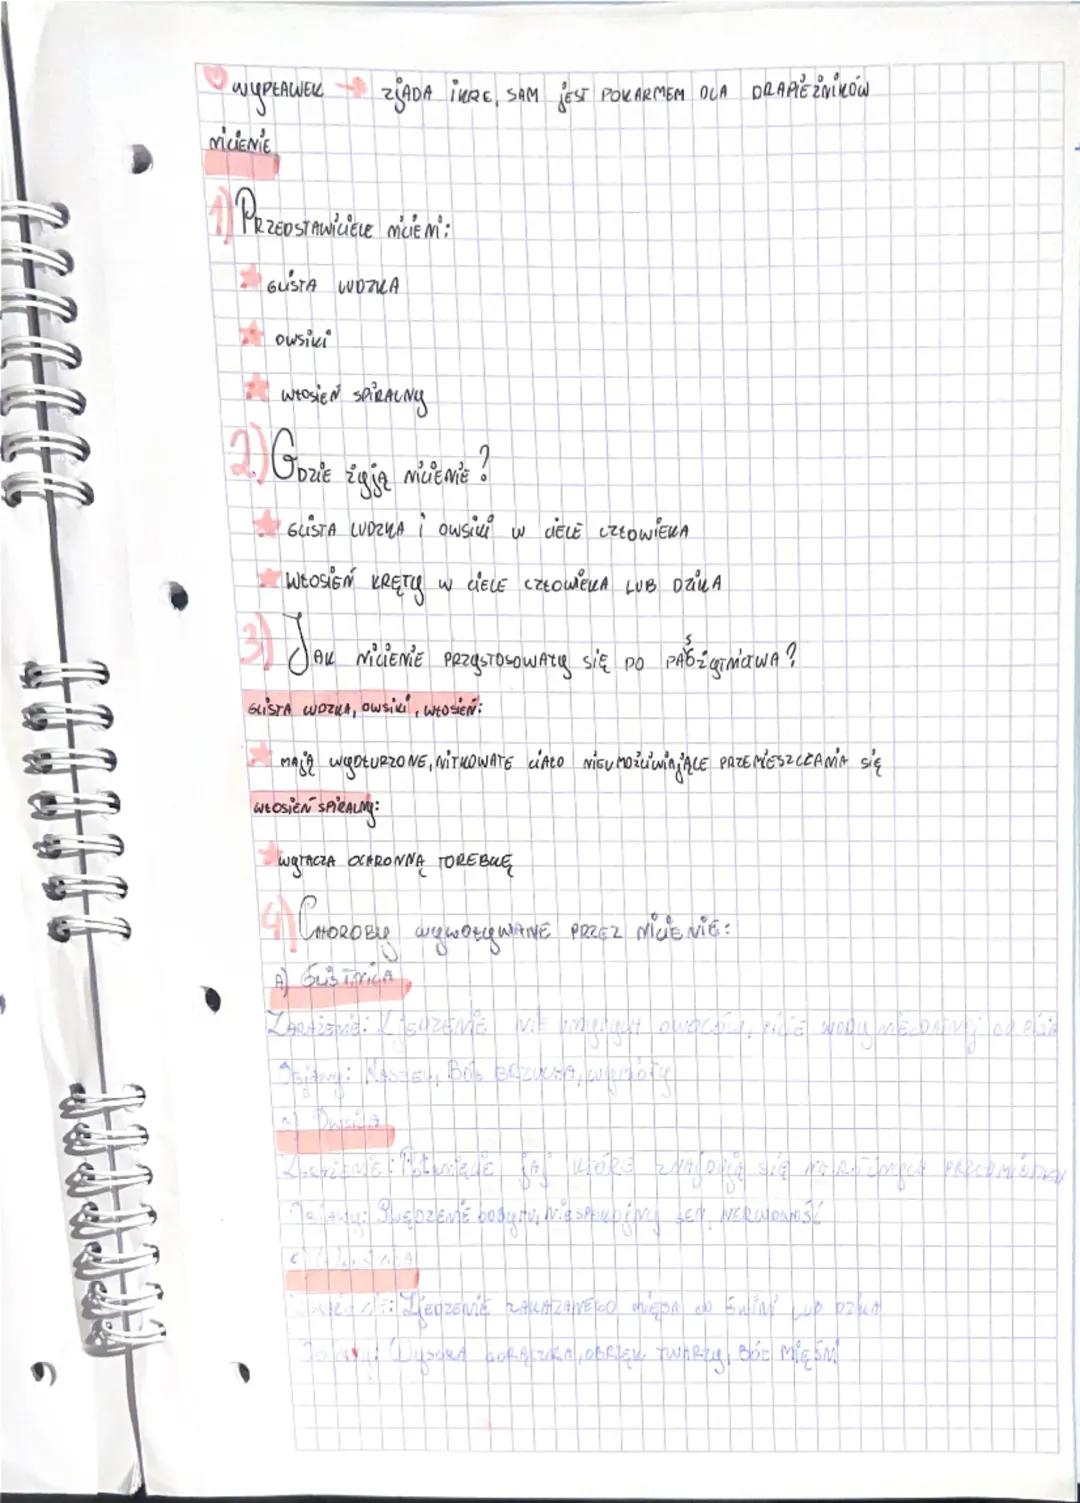 WYPŁAWEK → ZJADA IKRE, SAM JEST POKARMEM DLA DRAPIEŻNIKÓW
NICIENIE
1) PRZEDSTAWICIELE NICIENI:
GLISTA LUDZKA
OWSIKI
WŁOSIEŃ SPIRALNY
2.) GDZIE ŻYJĄ NICIENIE?
GLISTA LUDZKA I OWSIKI W CIELE CZŁOWIEKA
WŁOSIEŃ KRĘTY W CIELE CZŁOWIEKA LUB DZIKA
3) JAK NICIENIE PRZYSTOSOWAŁY SIĘ DO PASOŻYTNICTWA?
GLISTA LUDZKA, OWSIKI, WŁOSIEŃ:
MAJĄ WYDŁURZONE, NITKOWATE CIAŁO NIEUMOŻLIWIAJĄCE PRZEMIESZCZANIA SIĘ
WŁOSIEŃ SPIRALNY:
WYTACZA OCHRONNĄ TOREBKĘ
4) CHOROBY WYWOŁYWANE PRZEZ NICIENIE:
A) GLISTNICA
ZARAŻENIE: ZJEDZENIE NIE MYTYCH OWOCÓW, PICIE WODY
OBJAWY: KASZEL, BÓL BRZUCHA, WYMIOTY
ZARAŻENIE: POŁKNIĘCIE JAJ KTÓRE ZNAJDUJĄ SIĘ NA RÓŻNYCH PRZEDMIOTACH
OBJAWY: SWĘDZENIE ODBYTU, NIESPOKOJNY SEN, NERWOWOŚĆ
C)
ZARAŻENIE: ZJEDZENIE ZAKAŻANEGO MIĘSA OD ŚWINI LUB DZIKA
OBJAWY: WYSOKA GORĄCZKA, OBRZĘK TWARZY, BÓL MIĘŚNI